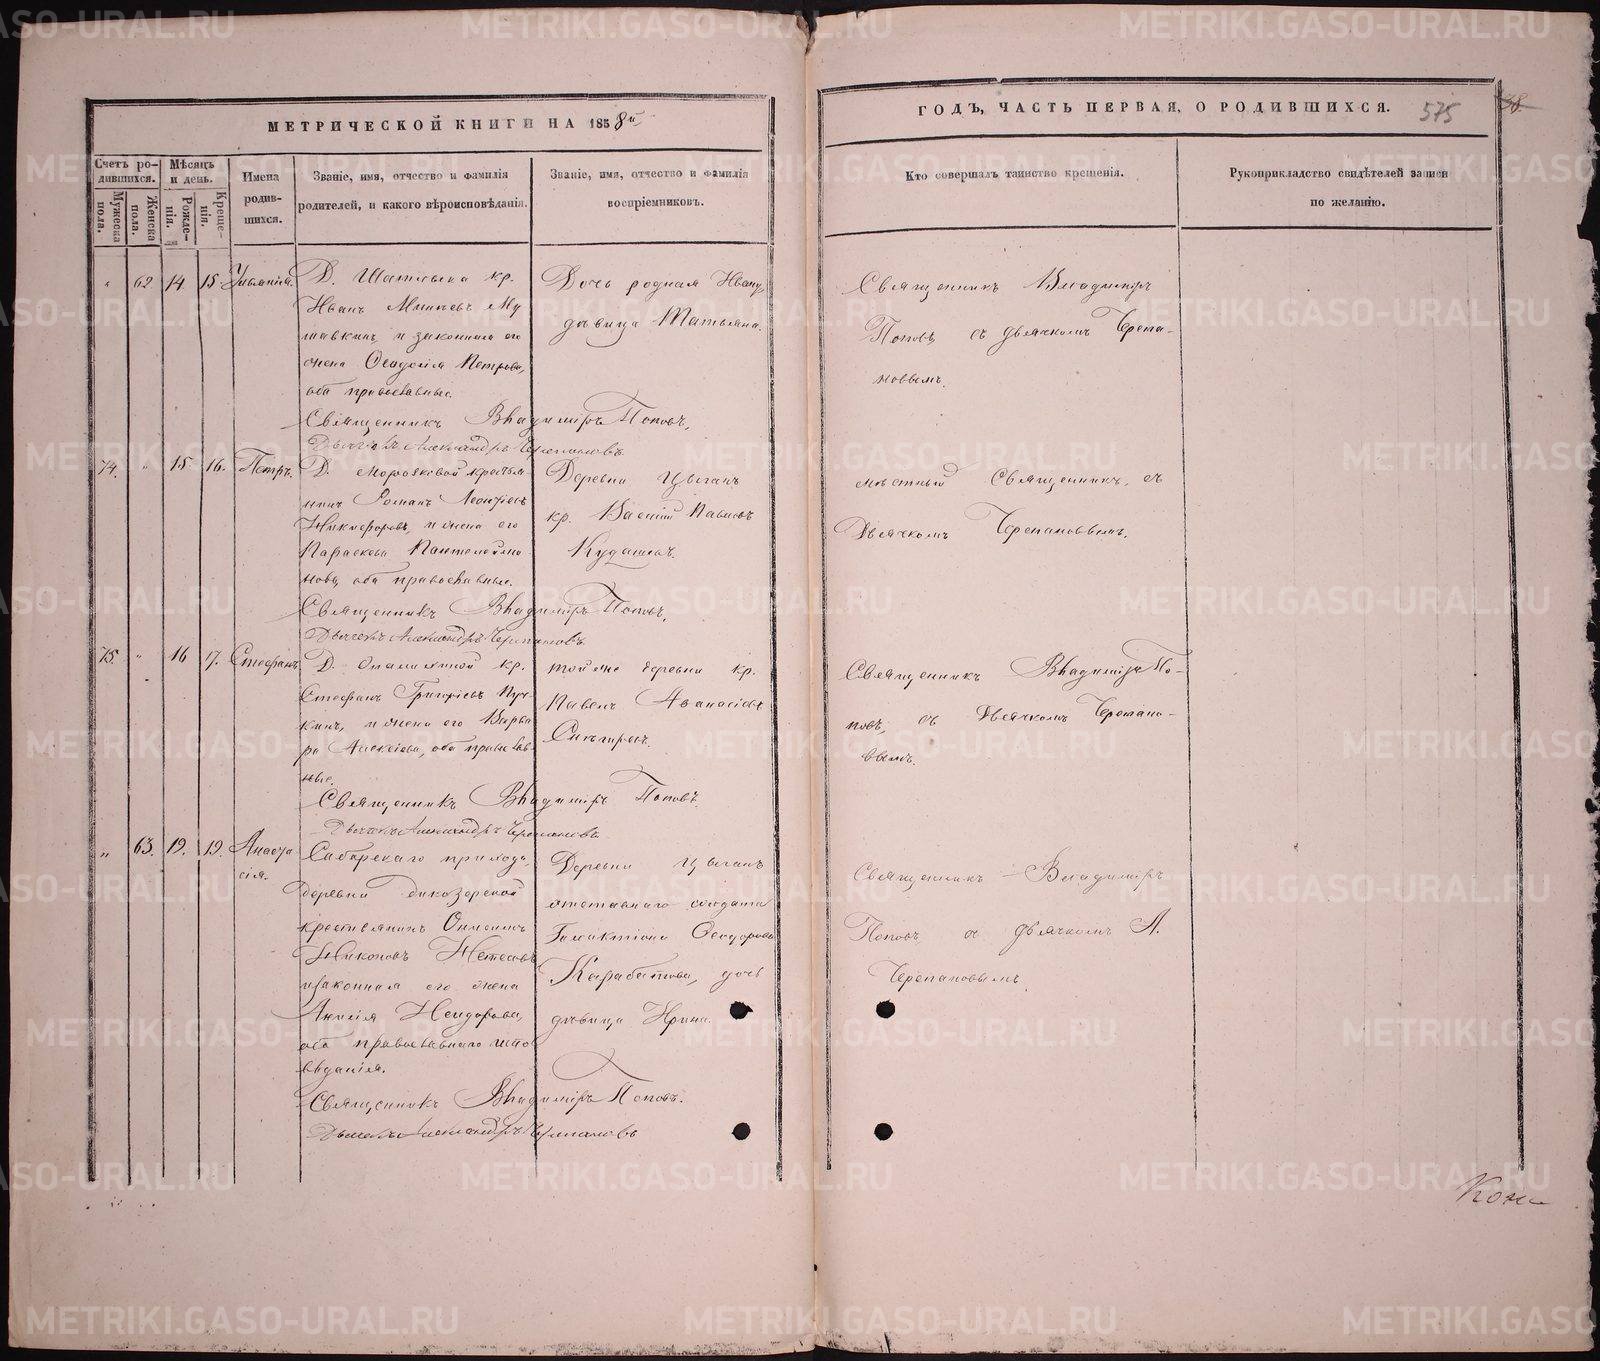 МЕТРИЧЕСКОЙ КНИГИ НА 1858й
ГОДЪ, ЧАСТЬ ПЕРВАЯ, О РОДИВШИХСЯ.
575
38
Счетъ родившихся.
Мужеска пола.
Женска пола.
Мѣсяцъ и день.
Рожденія.
Крещенія.
Имена родившихся.
Званіе, имя, отчество и фамилія
родителей, и какого вѣроисповѣданія.
Званіе, имя, отчество и фамилія
воспріемниковъ.
Кто совершалъ таинство крещенія.
Рукоприкладство свидѣтелей записи
по желанію.
" 62 14 15 Ульянія.
Д. кр.
Иванъ Му
и законная его
жена Ѳеодосія Петрова,
оба православные.
Дочь родная Ивану,
дѣвица Татьяна.
Священникъ Владимиръ
Поповъ, съ дьячкомъ Черепа-
новымъ.
Священникъ Владимиръ Поповъ,
Дьячекъ Александръ Черепановъ
74. " 15. 16. Петръ.
Д. крестья
нинъ Романъ Леонтіевъ
Никифоровъ, и жена его
Параскева Пантелеймо
нова, оба православные.
Деревни Цыганъ
кр. Василій Павловъ
Мѣстный Священникъ, съ
Дьячкомъ Черепановымъ.
Священникъ Владимиръ Поповъ,
Дьячекъ Александръ Черепановъ
75. " 16 17. Стефанъ.
Д. кр.
Стефанъ Григорьевъ Пуч-
кинъ, и жена его Варва
ра Алексіева, оба православ-
ные.
той же деревни кр.
Павелъ Аѳанасіевъ
Снѣгиревъ.
Священникъ Владимиръ По-
повъ, съ Дьячкомъ Черепано-
вымъ.
Священникъ Владимиръ Поповъ.
Дьячекъ Александръ Черепановъ
" 63. 19. 19. Анаста
сія.
Сабарскаго прихода,
деревни
крестьянинъ
Никоновъ
и законная его жена
Анисія
оба православнаго испо
вѣданія.
Деревни Цыганъ
отставнаго солдата
Галактіона Ѳеодорова
Карабатова, дочь
дѣвица Ирина.
Священникъ Владимиръ
Поповъ съ дьячкомъ А.
Черепановымъ
Священникъ Владимиръ Поповъ.
Дьячекъ Александръ Черепановъ
METRIKI.GASO-URAL.RU